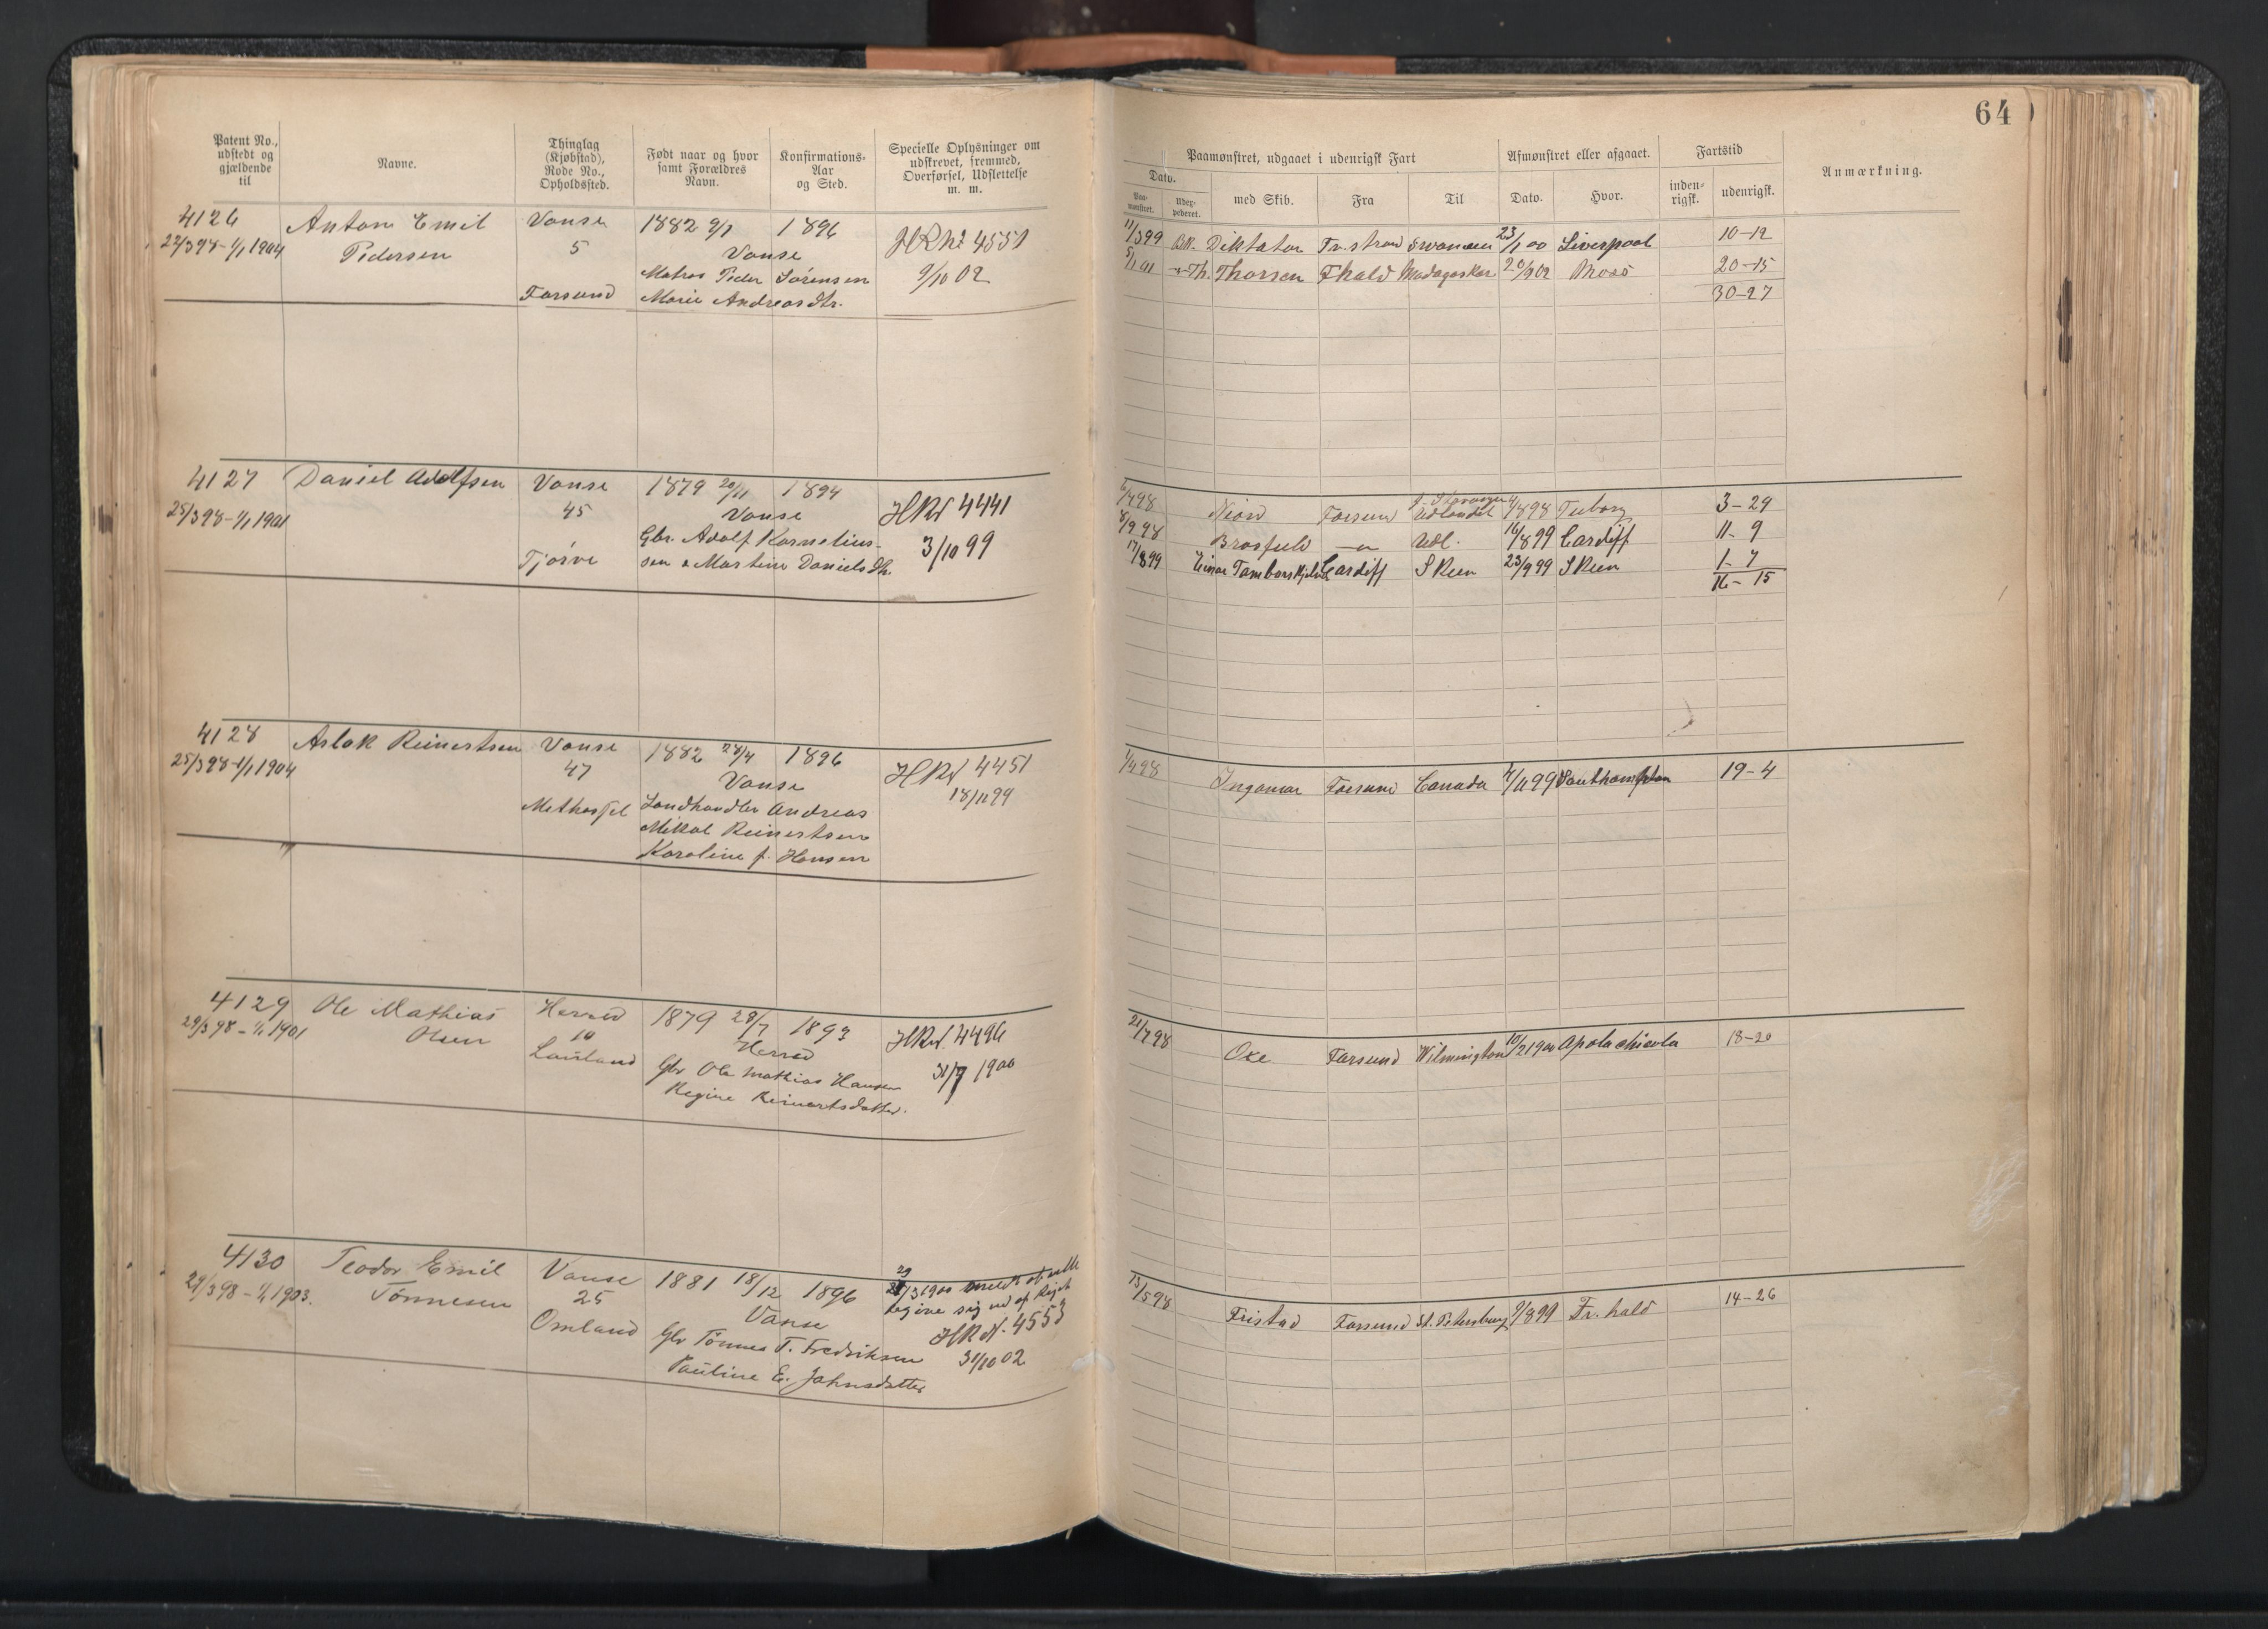 Patent No., udstedt og gjældende til
Navne.
Thinglag (Kjøbstad), Rode No., Opholdssted.
Født naar og hvor samt Forældres Navn.
Konfirmations-Aar og Sted.
Specielle Oplysninger om udskrevet, fremmed, Overførsel, Udslettelse m. m.
4126 Anton Emil Vanse 1882 9/7 1896 HRNo 4551
22/3 98 - 1/1 1904 Pedersen 5 Vanse 9/10 02
Matros Peder Sørensen
Farsund Marie Andreasdtr.
4127 Daniel Adolfsen Vanse 1879 20/11 1894 HRN 4441
25/3 98 - 1/1 1901 45 Vanse 3/10 99
Gbr. Adolf Kornelius-
Tjørve sen & Martine Danielsdtr.
4128 Aslak Reinertsen Vanse 1882 28/4 1896 HRN 4451
25/3 98 - 1/1 1904 47 Vanse 18/11 99
Landhandler Andreas
Mikal Reinertsen
Karoline f. Hansen
4129 Ole Mathias Herred 1879 28/7 1893 HRN 4496
29/3 98 - 1/1 1901 Olsen 10 Herred 31/7 1900
Lauland Gbr Ole Mathias Hansen
Regine Reinertsdatter.
4130 Teodor Emil Vanse 1881 18/12 1896 29/3 1900 meldt at ville
29/3 98 - 1/1 1903. Tønnesen 25 Vanse begive sig ud af Riget
Omland Gbr Tønnes T. Fredriksen HRN. 4553
Pauline E. Jahnsdatter 31/10 02
64
Paamønstret, udgaaet i udenrigsk Fart
Afmønstret eller afgaaet.
Fartstid
Anmærkning.
Dato.
Paa-mønstret.
Udex-pederet.
med Skib.
Fra
Til
Dato.
Hvor.
inden-rigsk.
udenrigsk.
11/3 99 Bk. Diktator Fr.strand Swansea 23/1 00 Liverpool 10-12
5/1 01 Th. Thorsen Fhald Madagaskar 20/9 02 Moss 20-15
30-27
6/4 98 Niord Farsund Udlandet 4/8 98 Tuborg 3-29
8/9 98 Brosfield — " Udl. 16/8 99 Cardiff 11-9
17/8 99 Einar Tambarskjelver Cardiff Skien 23/9 99 Skien 1-7
16-15
1/4 98 Ingomar Farsund Canada 4/11 99 Southampton 19-4
21/7 98 Oxe Farsund Wilmington 10/2 1900 Apolachicola 18-20
13/5 98 Fristad Farsund St. Petersburg 9/8 99 Fr. hald 14-26